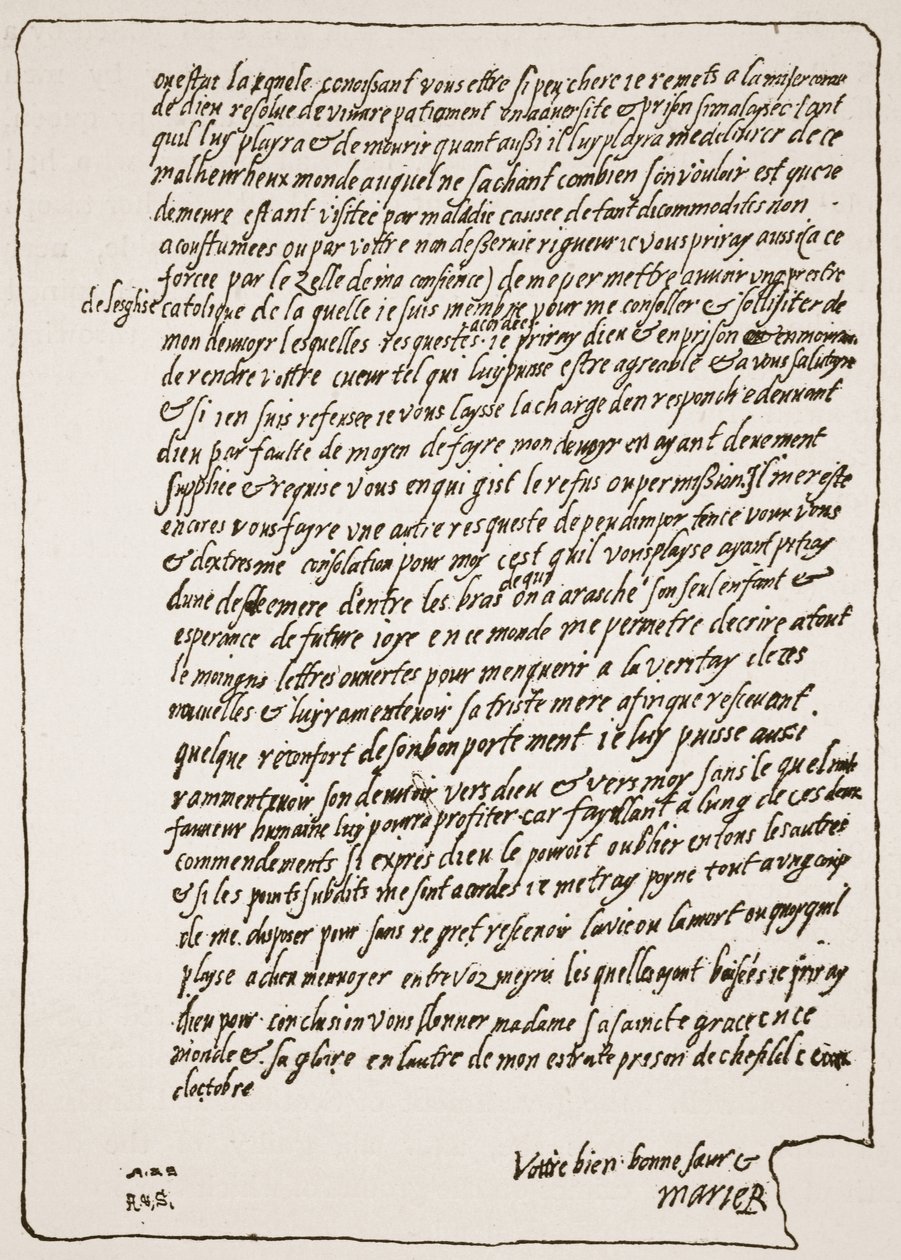 la quele conoissant vous ettre si peu chere ie remets a la misericorde
de dieu resolue de vivvre patiament en adversite & prison si malaysee tant
quil luy playra & de mourir quant aussi il luy playra me delibvrer de ce
malheurheux monde auquel ne sachant combien son vouloir est que ie
demeure estant visitee par maladie causee de tant dicommodites non
acoustumees ou par vottre non desservie rigueur ie vous priray aussi (a ce
forcee par le zelle de ma consience) de me permettre avvoir ung prestre
de lesglise catolique de la quelle ie suis membre pour me consoller & solisiter de
mon debvoyr lesquelles resquestes acordees ie priray dieu & en prison & en mourant
de rendre vottre cueur tel qui luy puisse estre agreable & a vous salutayre
& si ien suis refusee ie vous laysse la charge den respondre devvant
dieu par faulte de moyen de fayre mon debvoyr en ayant devement
suppliee & requise vous en qui gist le refus ou permission. Il me reste
encores vous fayre une autre resqueste de peu dimportence pour vous
& dextresme consolation pour moy cest quil vous playse ayant pitay
dune desolee mere d'entre les bras de qui on a arasché son seul enfant &
esperance de future ioye en ce monde me permetre decrire a tout
le moingns lettres ouvertes pour menquerir a la veritay de ces
nouvelles & luy ramentevoir sa triste mere afin que rescevant
quelque réconfort de son bon portement ie luy puisse aussi
rammentevoir son debvoir vers dieu & vers moy sans le quel nulle
faveur humaine luy pourra profiter car fayllant a lung de ces deux
commendements si exprés dieu le pouroit oublier en tous les autres
& si les points subdits me sont acordes ie metray poyne tout a ung coup
de me disposer pour sans regret rescevoir la vie ou la mort ou quoy quil
playse a dieu menvoyer entre voz meyns lesquelles ayant baisées ie priray
dieu pour conclusion vous donner madame sa saincte grace en ce
monde & sa gloire en lautre de mon estroite prison de chefild ce
doctobre
Vottre bien bonne sœur &
MARIE R